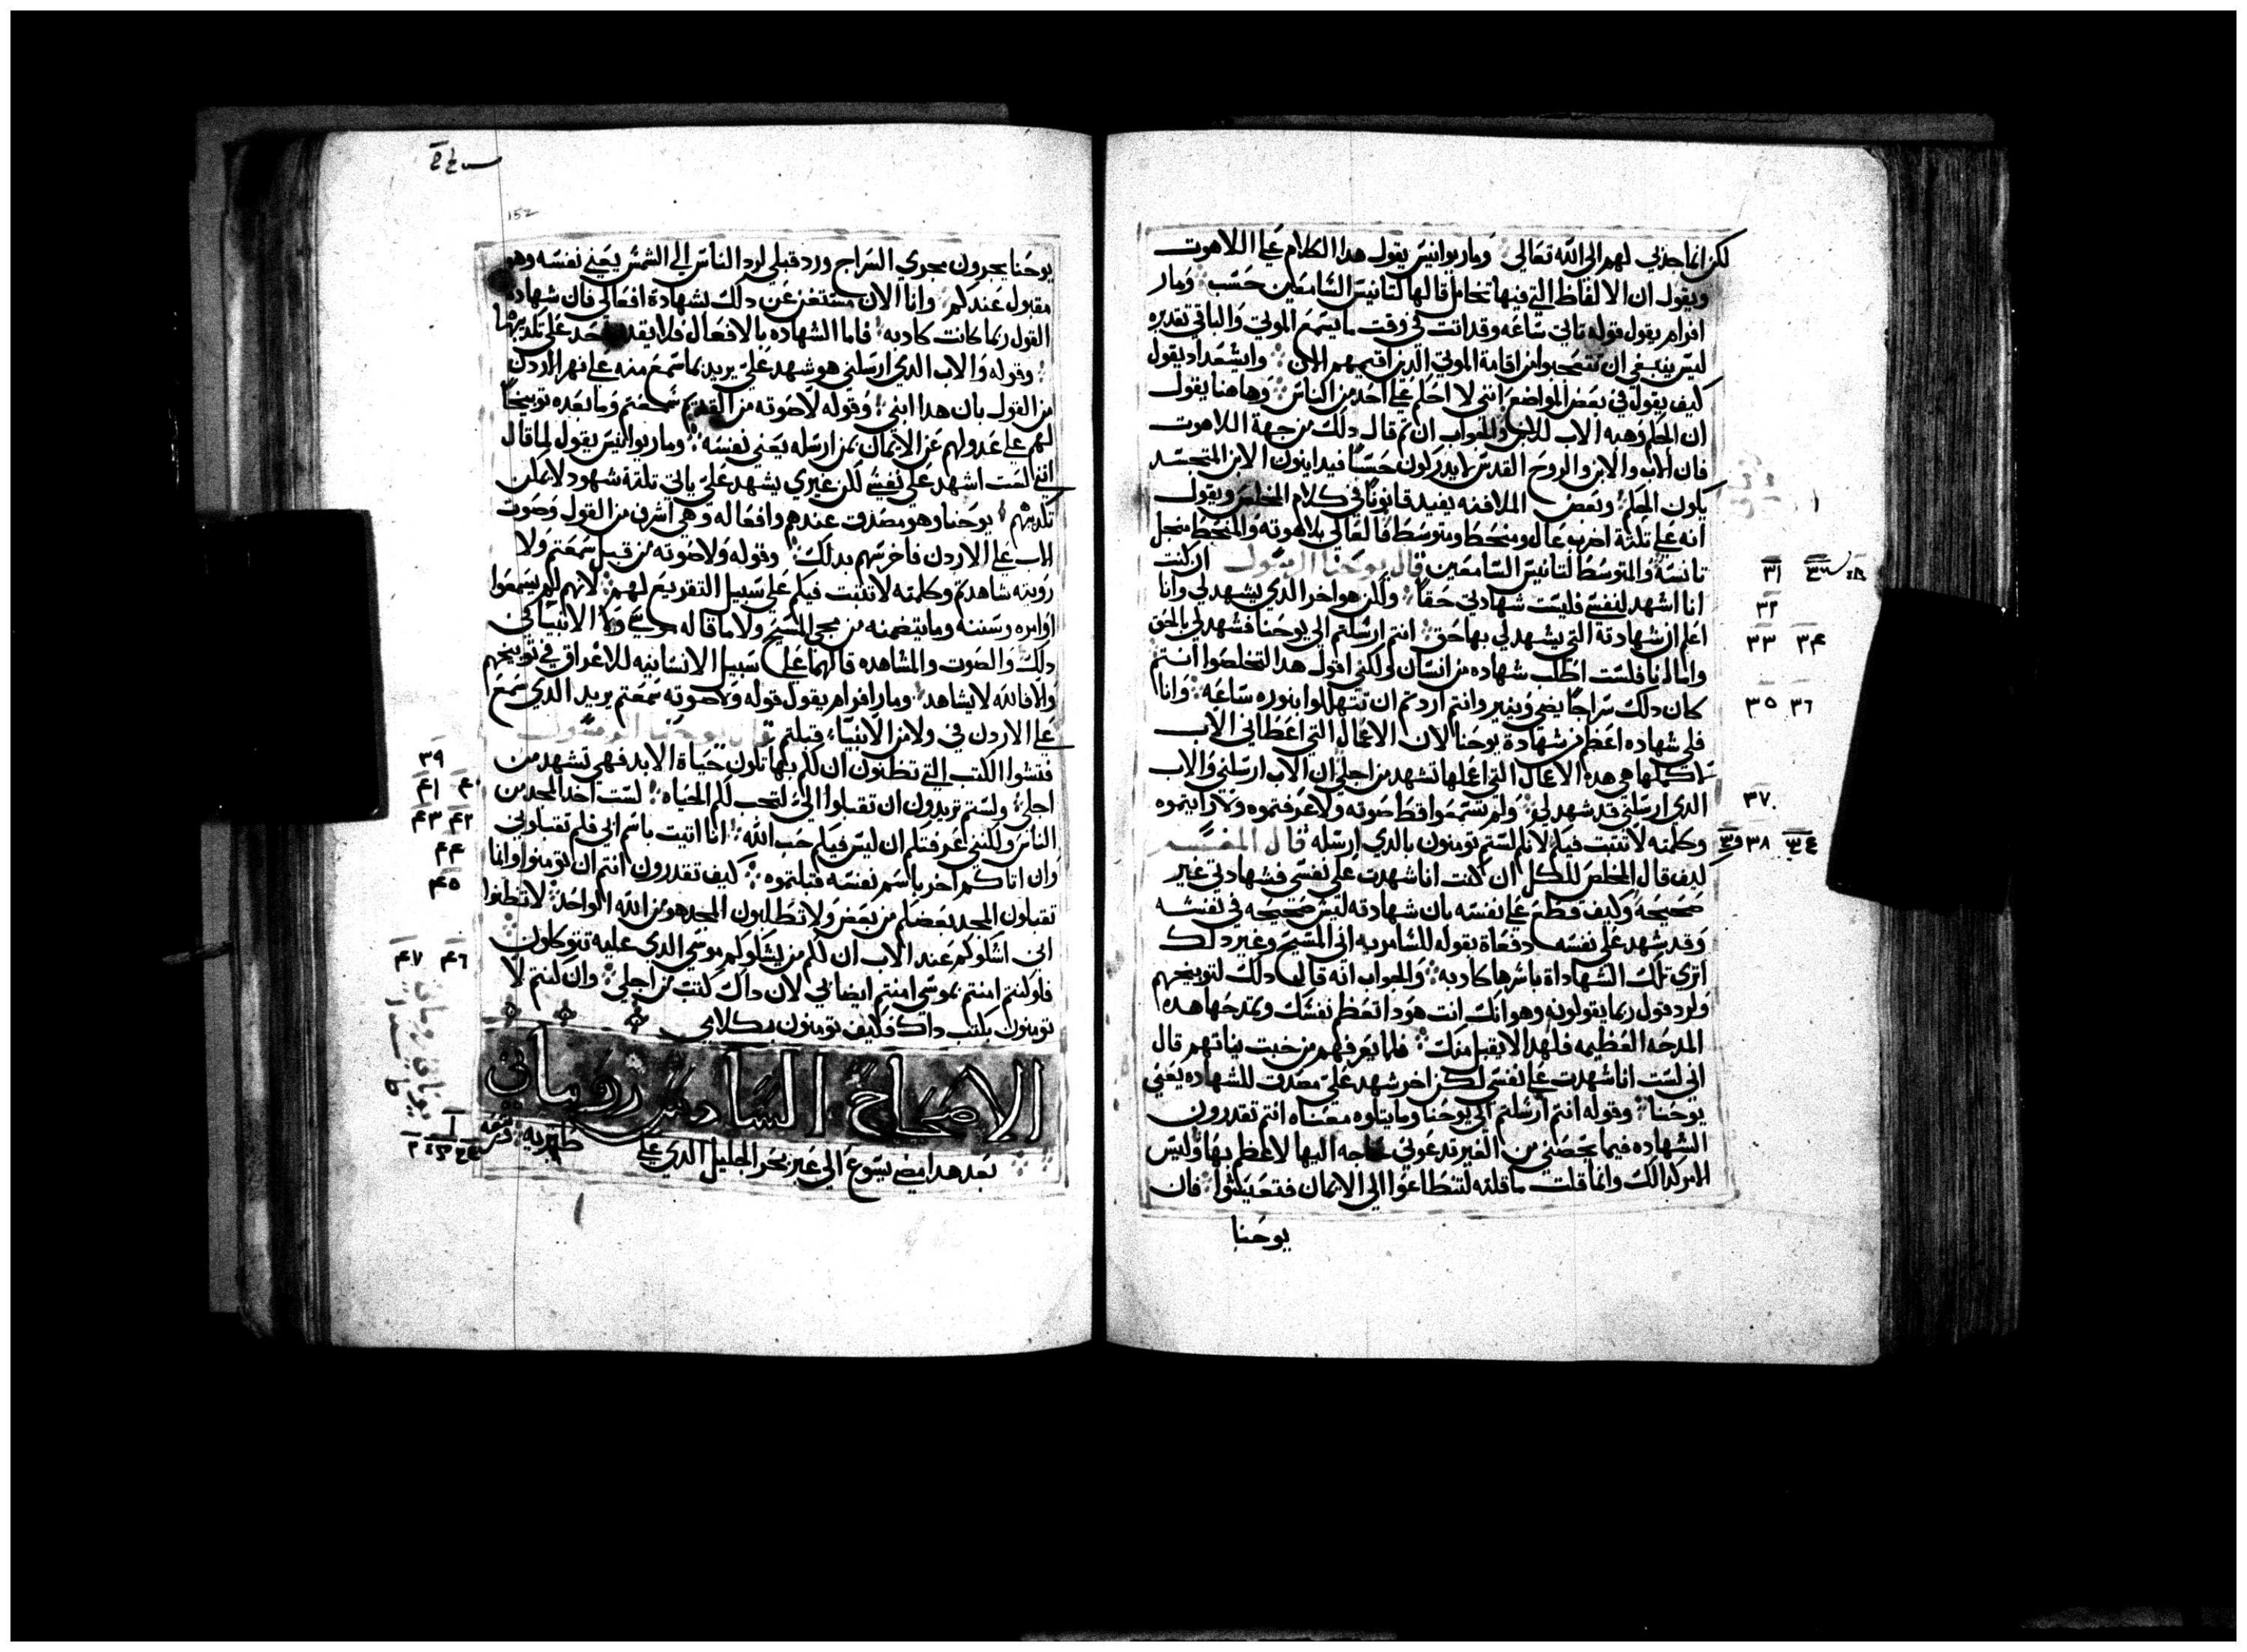 لكن انما جذبني لهم الى الله تعالى وماريوانيس يقول هدا الكلام علي اللاهوت
ويقول ان الالفاظ التي فيها تحامل قالها لتانيس السامعين حسب ومار
افرام يقول قوله تاتي ساعه وقد اتت في وقت ما يسمع الموتى والباقي تقديره
ليس ينبغي ان تتعجبوا من اقامة الموتي الدين اقيمهم الان وايشعداد يقول
كيف يقول في بعض المواضع انني لا احكم علي احد من الناس وهاهنا يقول
ان الحكم وهبه الاب للابن والجواب ان تم قال دلك من جهة اللاهوت
فان الاب والابن والروح القدس لا يدركون حسا فيداينون الابن المتجسد
يكون الحكم وبعض الملافنه يفيد قانونا في كلام المخلص ويقول
انه علي تلتة اضرب عال ومنحط ومتوسط فالعالي بلاهوته والمنحط من اجل
تانسه والمتوسط لتانيس السامعين قال يوحنا الرسول ان كنت
انا اشهد لنفسي فليست شهادتي حقا ولكن هو اخر الدي يشهد لي وانا
اعلم ان شهادته التي يشهد لي بها حق انتم ارسلتم الى يوحنا فشهد لي بالحق
واما انا فلست اطلب شهاده من انسان ولكني اقول هدا لتخلصوا انتم
كان دلك سراجا يضي وينير وانتم اردتم ان تتهللوا بنوره ساعه وانا
فلي شهاده اعظم من شهادة يوحنا لان الاعمال التي اعطاني الاب
لاكملها هي هده الاعمال التي اعملها تشهد من اجلي ان الاب ارسلني والاب
الدي ارسلني قد شهد لي ولم تسمعوا قط صوته ولا عرفتموه ولا رايتموه
وكلمته لا تتبت فيكم لانكم لستم تومنون بالدي ارسله قال المفسر
كيف قال المخلص للكل ان كنت انا شهدت علي نفسي فشهادتي غير
صحيحة وكيف قطع علي نفسه بان شهادته ليس صحيحه في نفسه
وقد شهد علي نفسه دفعاة بقوله للسامريه اني المسيح وغير دلك
اترى تلك الشهاداة باسرها كادبه والجواب انه قال دلك لتوبيخهم
ولرد قول ربما يقولونه وهو انك انت هو دا تعظم نفسك وتمدحها هده
المدحه العظيمه فلهدا لا يقبل منك فلما يعرفهم من خبت نياتهم قال
اني لست انا شهدت علي نفسي لكن اخر شهد علي مصدق للشهاده يعني
يوحنا وقوله انتم ارسلتم الى يوحنا وما يتلوه معناه انتم تقدرون
الشهاده فيما يخصني من الغير تدعوني حاجه اليها لاعظم بها وليس
الامر كدالك وانما قلت ما قلته لتنطاعوا الي الايمان فتعيشوا فان
يوحنا
٣١ ٣٢ ٣٣ ٣٤ ٣٥ ٣٦ ٣٧ ٣٨
152
يوحنا يجرون مجري السراج ورد قبلي لرد الناس الى الشمس يعني نفسه وهو
مقبول عندكم وانا الان مستغن عن دلك بشهادة افعالي فان شهادة
القول ربما كانت كادبه فاما الشهاده بالافعال فلا يقدر احد علي تكديبها
وقوله والاب الدي ارسلني هو شهد علي يريد بما سمع منه علي نهر الاردن
من القول بان هدا ابني وقوله لا صوته من القديم سمعتم وما بعده توبيخا
لهم علي عدولهم عن الايمان بمن ارسله يعني نفسه وماريوانيس يقول لما قال
انني لست اشهد علي نفسي لكن غيري يشهد علي ياتي تلتة شهود لا يمكن
تكديبهم يوحنا وهو مصدق عندهم وافعاله وهي اشرف من القول وصوت
الاب علي الاردن فاخرسهم بدلك وقوله ولا صوته من قبل سمعتم ولا
رويته شاهدتم وكلمته لا تتبت فيكم علي سبيل التقريع لهم لانهم لم يسمعوا
اوامره وسننه وما يتضمنه من مجي المسيح ولا ما قاله موسي ولا الانبيا في
دلك والصوت والمشاهده قالهما علي سبيل الانسانيه للاغراق في توبيخهم
والا فالله لا يشاهد ومار افرام يقول قوله ولا صوته سمعتم يريد الدي سمع
علي الاردن في ولا من الانبياء قبلتم قال يوحنا الرسول
فتشوا الكتب التي تظنون ان لكم بها تكون حياة الابد فهي تشهد من
اجلي ولستم تريدون ان تقبلوا الي لتجب لكم الحياه لست اخد المجد من
الناس ولكنني عرفتكم ان ليس فيكم حب الله انا اتيت باسم ابي فلم تقبلوني
وان اتاكم اخر باسم نفسه قبلتموه كيف تقدرون انتم ان تومنوا وانما
تقبلون المجد بعضكم من بعض ولا تطلبون المجد هو من الله الواحد لا تظنوا
اني اشكوكم عند الاب ان لكم من يشكوكم موسي الدي عليه تتوكلون
فلو كنتم امنتم بموسي امنتم ايضا بي لان داك كتب من اجلي وان كنتم لا
تومنون بكتب داك فكيف تومنون بكلامي
الاصحاح السادس روماني
بعد هدا مضي يسوع الي عبر بحر الجليل الدي علي طبريه
٣٩ ٤٠ ٤١ ٤٢ ٤٣ ٤٤ ٤٥ ٤٦ ٤٧